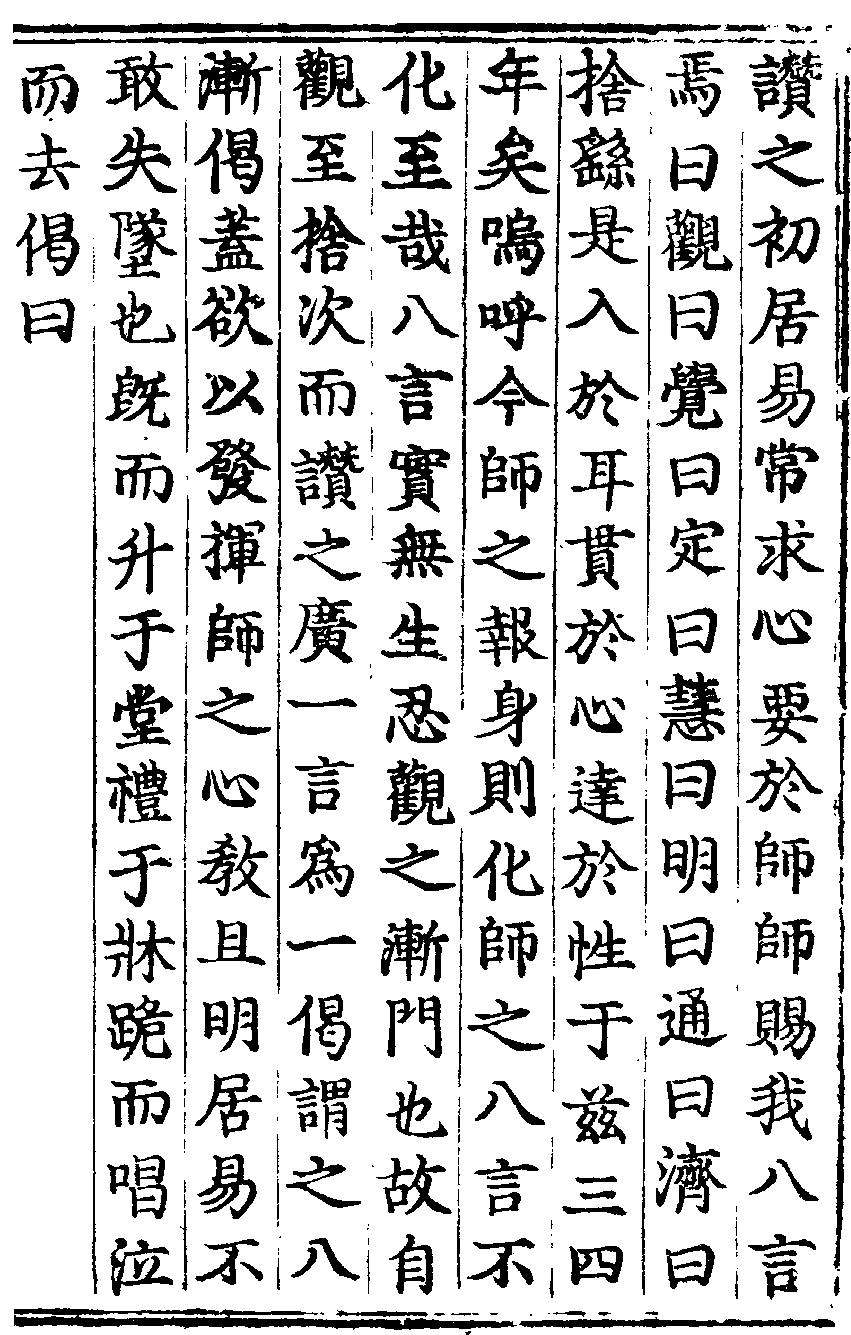 讚之初居易常求心要於師師賜我八言
焉曰觀曰覺曰定曰慧曰明曰通曰濟曰
捨繇是入於耳貫於心達於性于茲三四
年矣嗚呼今師之報身則化師之八言不
化至哉八言實無生忍觀之漸門也故自
觀至捨次而讚之廣一言爲一偈謂之八
漸偈蓋欲以發揮師之心教且明居易不
敢失墜也旣而升于堂禮于牀跪而唱泣
而去偈曰